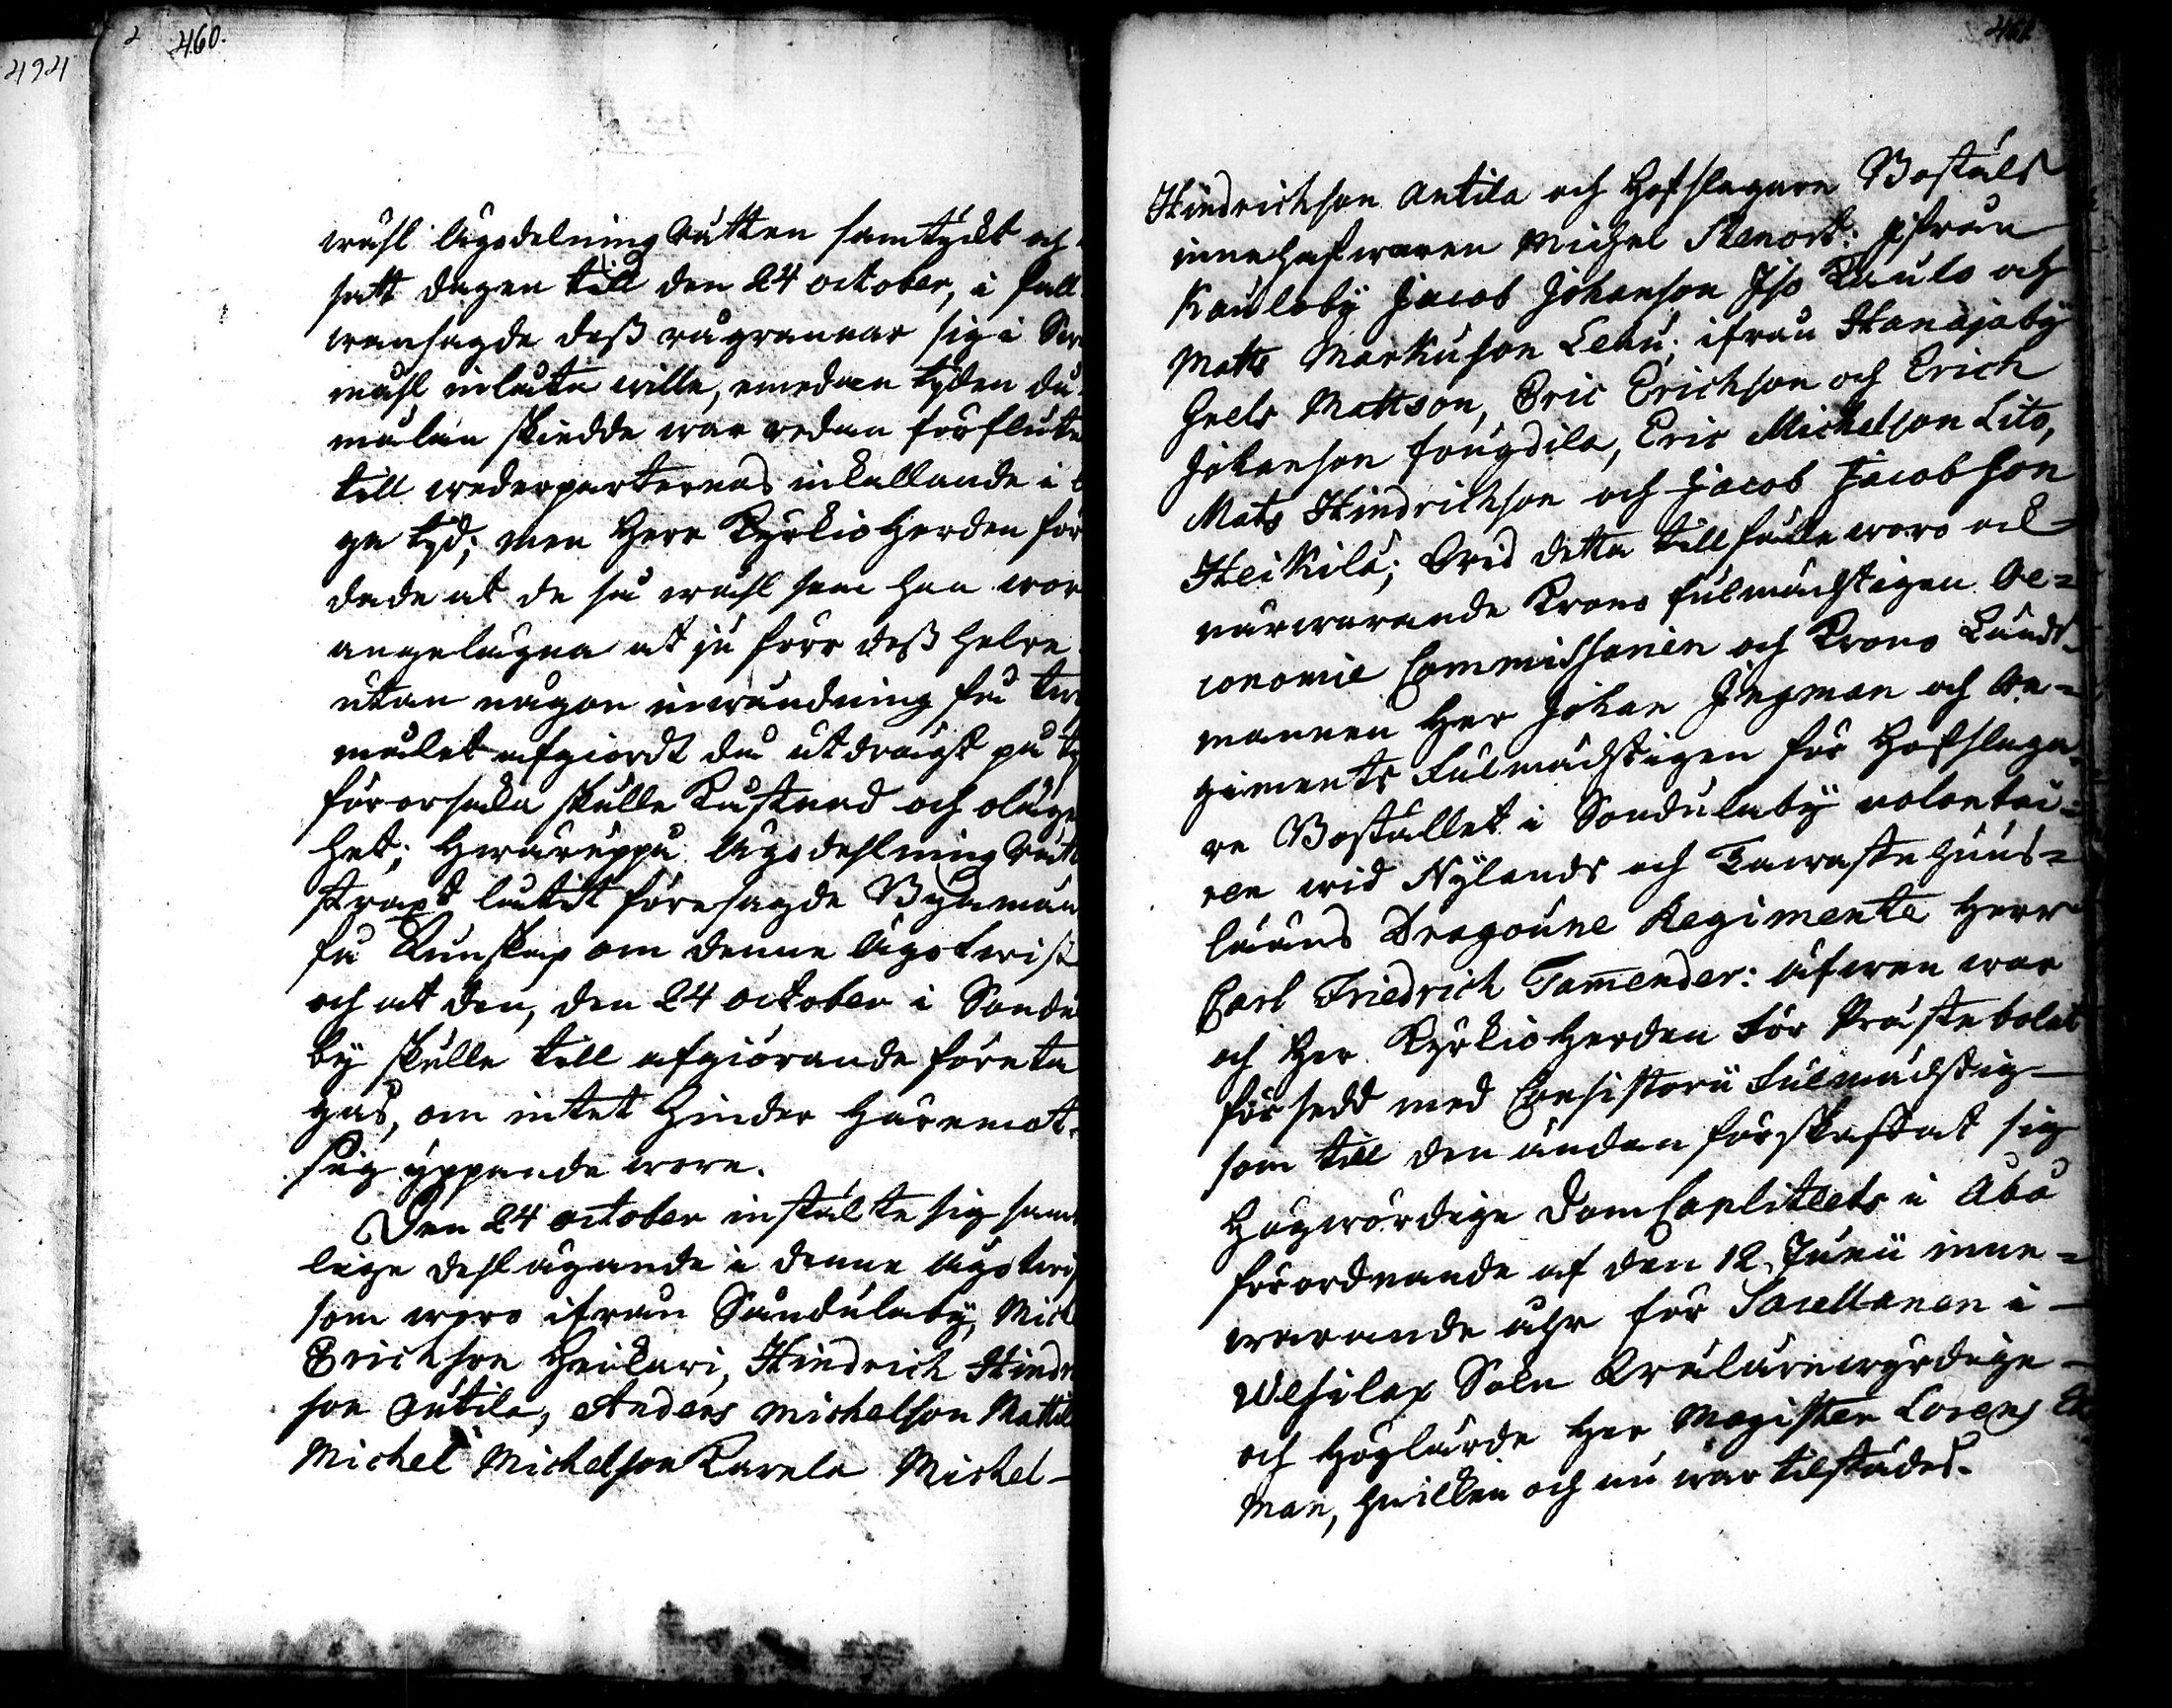 494
2 460.
wähl ägodelning Rätten samtyckt och
satt dagen till den 24 october, i fall
wansagde dess rågrannar sig i Swa
mähl inlåta wille, emedan tyden då
målan skiedde war redan förfluten
till wederparternas inkallande i
ge tyd; men Herr Kyrkioherden för
dade at de så wähl som han wor
angelägna at ju förr dess helre
utan någon inwändning få twi
målet afgiordt då utdrägt på ty
förorsaka skulle Kåstnad och oläge
het; Hwaruppå ägodehlning Rätt
straxt lätit föresagde Byamän
få Kunskap om denne ägotwist
och at den, den 24 october i Sandu
by skulle till afgiörande företa
gas, om intet Hinder häremot
sig yppande wore.
Den 24 october instälte sig samt
lige dehlägande i denne ägotwist
som woro ifrån Sandulaby, Mich
Erichson Heickari, Hindrich Hindri
son Antila, Anders Michelson Mattila
Michel Michelson Karela Michel-
461
Hindrichson Antila och Hofslagare Boställs
innehafwaren Michel Stenort: ifrån
Kauloby Jacob Johanson Iso Kaulo och
Matts Markuson Leau; ifrån Hanajaby
Greels Mattson, Eric Erichson och Erich
Johanson fougdila, Eric Michelson Lito,
Mats Hindrichson och Jacob Jacobson
Heikilä; Wid detta tillfälle woro ock-
närwarande Krono fulmächtigen Oe=
conomie Commissarien och Krono Länds-
mannen Her Johan Jngman och Re-
giments Fulmächtigen för Hofslaga=
re Bostället i Sandulaby volontai=
ren wid Nylands och Tawastehuus=
lääns Dragoune Regimente Herr
Carl Friedrich Tamender: äfwen war
och Her Kyrkioherden för Prästebolet
försedd med Consistorii Fulmächtig-
som till den ändan förskaffat sig
Högwördige DomCaplitlets i Åbo
förordnande af den 12 Junii inne-
warande åhr för Sacellanen i -
Wesilax Sokn Wällärewyrdige -
och Höglärde Her Magister Lorens Ek
man, hwilken och nu war tilstädes.